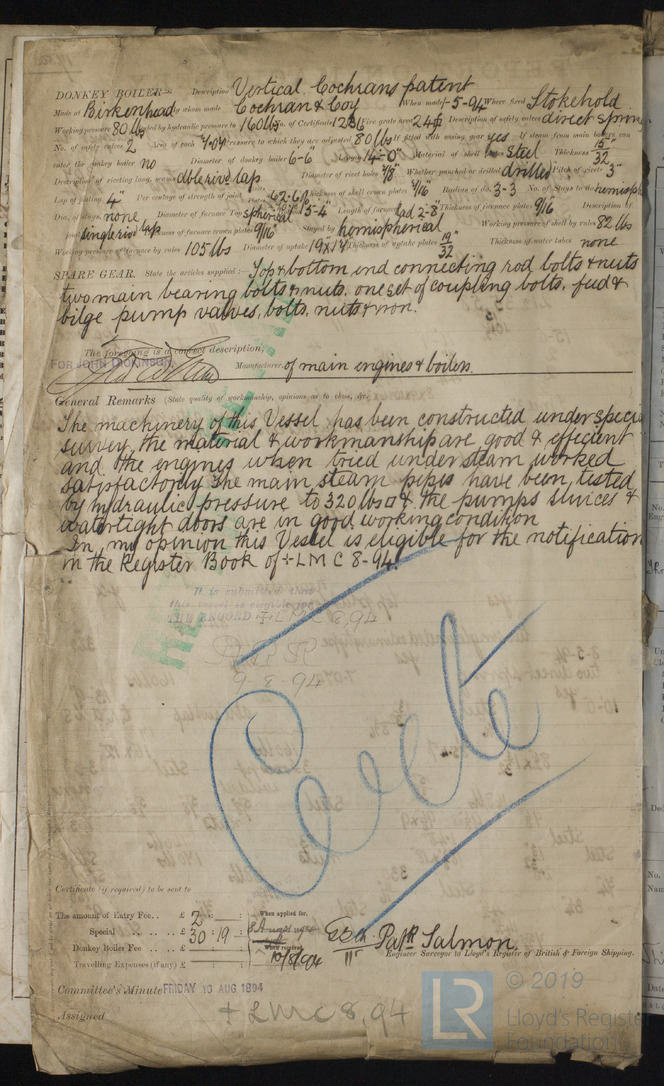 DONKEY BOILER— Description Vertical. Cochrans patent
Made at Birkenhead By whom made Cochran & Coy When made -5-94 Where fixed Stokehold
Working pressure 80 lbs tested by hydraulic pressure to 160 lbs No. of Certificate 1236 Fire grate area 24 Description of safety valves direct spring
No. of safety valves 2 Area of each 7.07 Pressure to which they are adjusted 80 lbs If fitted with easing gear yes If steam from main boilers can
enter the donkey boiler no Diameter of donkey boiler 6-6 Length 14-0" Material of shell plates steel Thickness 15/32"
Description of riveting long. seams dble riv lap Diameter of rivet holes 7/8" Whether punched or drilled drilled Pitch of rivets 3"
Lap of plating 4" Per centage of strength of joint Thickness of shell crown plates 9/16 Radius of do. 3-3 No. of Stays to do. hemisph
Dia. of stays none Diameter of furnace Top spherical Bottom 5-4 Length of furnace Thickness of furnace plates 9/16 Description of
joint single riv lap Thickness of furnace crown plates 9/16" Stayed by hemispherical Working pressure of shell by rules 82 lbs
Working pressure of furnace by rules 105 lbs Diameter of uptake 19x14 Thickness of uptake plates Thickness of water tubes none
SPARE GEAR. State the articles supplied:— Top & bottom end connecting rod bolts & nuts
two main bearing bolts & nuts, one set of coupling bolts, feed &
bilge pump valves, bolts, nuts & iron.
The foregoing is a correct description,
FOR JOHN DICKINSON
Manufacturer of main engines & boilers.
General Remarks (State quality of workmanship, opinions as to class, &c.
The machinery of this Vessel has been constructed under special
survey, the material & workmanship are good & efficient
and the engines when tried under steam worked
satisfactorily The main steam pipes have been tested
by hydraulic pressure to 320 lbs □" & the pumps sluices &
watertight doors are in good working condition
In my opinion this Vessel is eligible for the notification
in the Register Book of + LMC 8-94.
It is submitted that
this vessel is eligible for
THE RECORD + LMC 8,94
Certificate (if required) to be sent to
The amount of Entry Fee.. £ 2 : : When applied for,
Special .. .. .. £ 30 : 19 :
Donkey Boiler Fee .. .. £ : : When received,
Travelling Expenses (if any) £ : :
Patk Salmon
Engineer Surveyor to Lloyd's Register of British & Foreign Shipping.
Committee's Minute FRIDAY 10 AUG 1894
Assigned + LMC 8.94
© 2019
LR
Lloyd's Register
Foundation